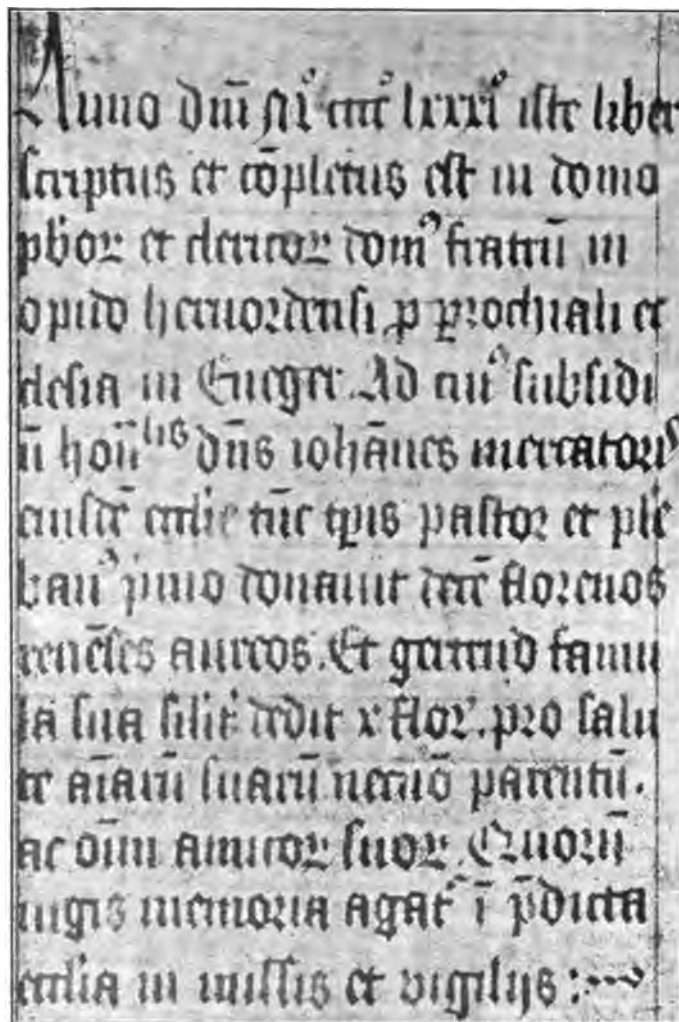 Anno dñi Mº ccccº lxxxiº iste liber
scriptus et cōpletus est in domo
pb̄oꝝ et clericoꝝ domꝰ fratrū in
opido heruordensi ꝓ ꝑrochiali ec
clesia in Enegꝛ. Ad cuiꝰ subsidi
ū hon̄lis dn̄s iohānes mercatorꝭ
eiusdē eccl̄ie tūc tꝑis pastor et ple
banꝰ pͥmo donauit decē florenos
renēses aureos. Et gertrud famu
la sua silit̕ dedit x flor̕. pro salu
te aīarū suarū necnō parentū.
ac oīm amicoꝝ suoꝝ. Quorū
iugis memoria agat̕ ī p̄dicta
eccl̄ia in missis et vigilijs :~